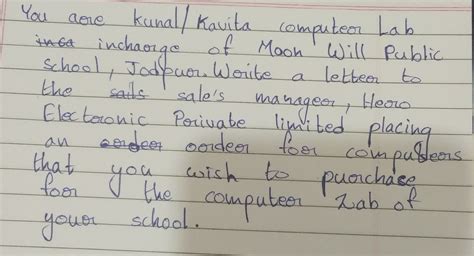 You are Kunal/Kavita computer Lab
incharge of Moon Will Public
school, Jodpur. Write a letter to
the sale's manager, Hero
Electronic Private limited placing
an order for computers
that you wish to purchase
for the computer Lab of
your school.